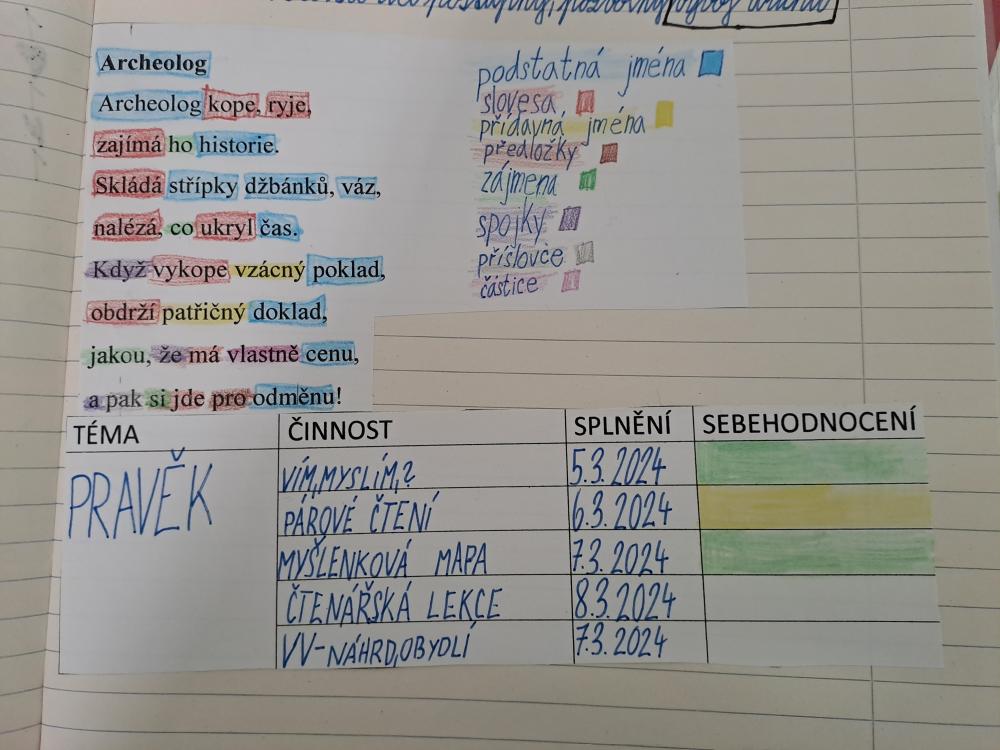 Archeolog
Archeolog kope, ryje,
zajímá ho historie.
Skládá střípky džbánků, váz,
nalézá, co ukryl čas.
Když vykope vzácný poklad,
obdrží patřičný doklad,
jakou, že má vlastně cenu,
a pak si jde pro odměnu!
podstatná jména
slovesa
přídavná jména
předložky
zájmena
spojky
příslovce
částice
TÉMA ČINNOST SPLNĚNÍ SEBEHODNOCENÍ
PRAVĚK VÍM,MYSLÍM,? 5.3.2024
PÁROVÉ ČTENÍ 6.3.2024
MYŠLENKOVÁ MAPA 7.3.2024
ČTENÁŘSKÁ LEKCE 8.3.2024
VV-NÁHRD,OBYDLÍ 7.3.2024